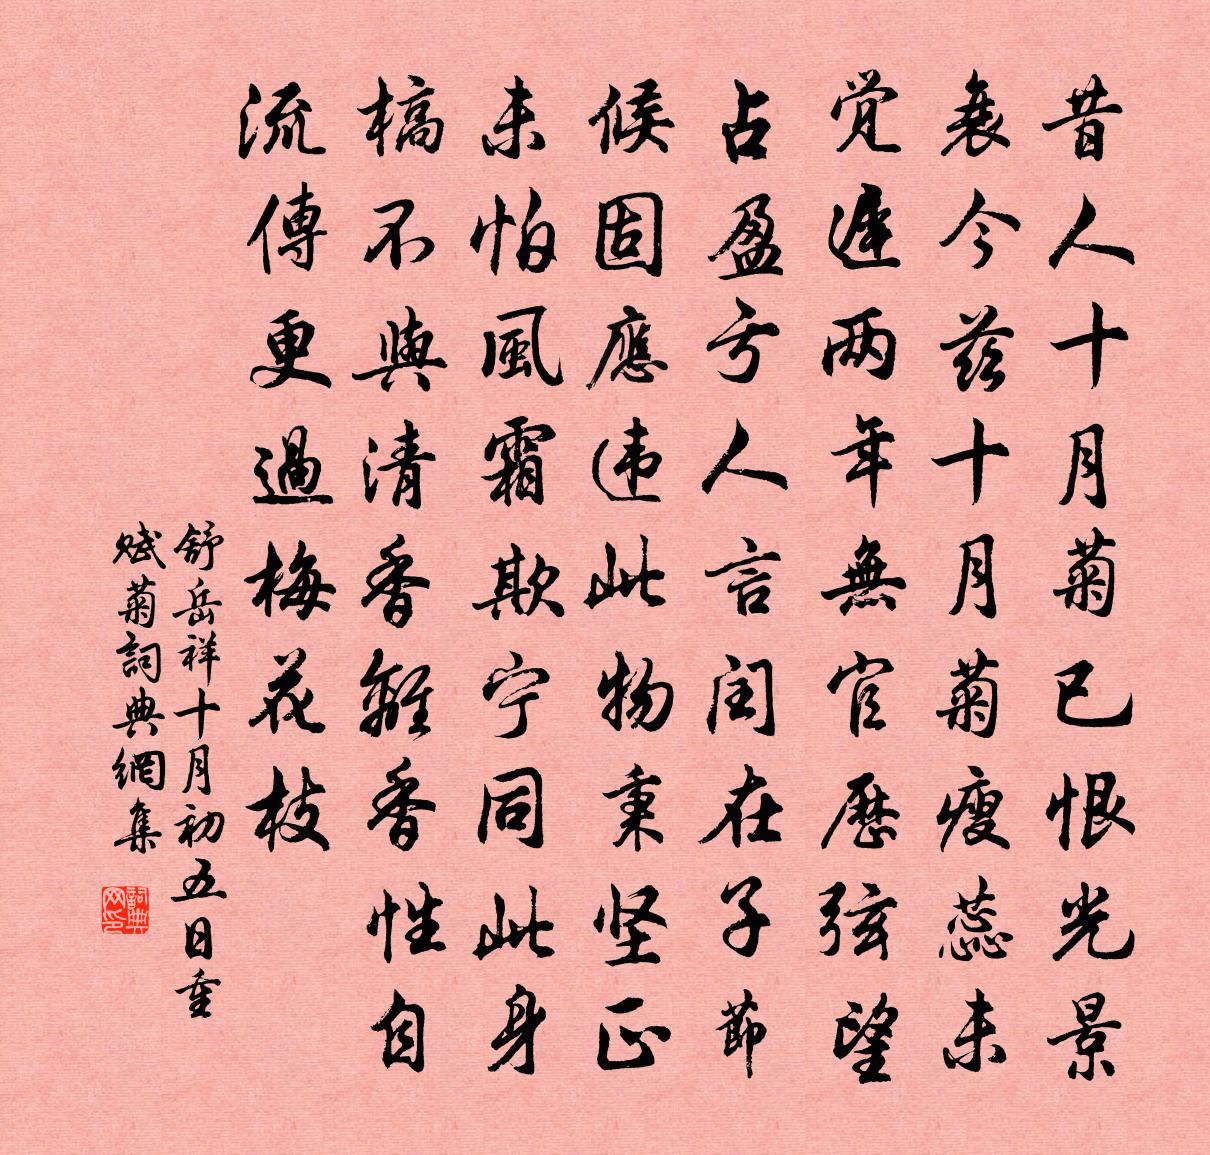 昔人十月菊已恨光景
衰今兹十月菊瘦蕊未
觉遲两年無官歷弦望
占盈亏人言闰在子節
候固應违此物秉坚正
未怕風霜欺宁同此身
槁不與清香離香性自
流傳更過梅花枝
舒岳祥十月初五日重
赋菊詞典網集
詞典网印